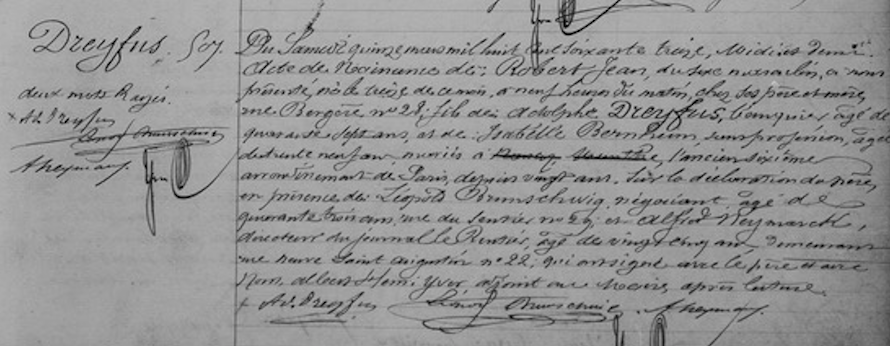 Dreyfus. 507.
deux mots Rayés.
Ad Dreyfus
A Neymarck
Du Samedi quinze mars mil huit cent soixante treize, Midi et demi
Acte de Naissance de: Robert Jean, du sexe masculin, à nous
présenté, né le treize de ce mois, à neuf heures du matin, chez ses père et mère,
rue Bergère no 28, fils de: Adolphe Dreyfus, banquier, âgé de
quarante sept ans, et de: Isabelle Bernheim, sans profession, âgée
de trente neuf ans, mariés à l'ancien sixième
arrondissement de Paris, depuis vingt ans. Sur la déclaration du père,
en présence de: Léopold Brunschwig, négociant, âgé de
quarante trois ans, rue du Sentier no 29; et Alfred Neymarck,
directeur du journal le Rentier, âgé de vingt cinq ans, demeurant
rue neuve Saint Augustin no 22; qui ont signé avec le père et avec
Nous, Albert Henri Yver, adjoint au Maire, après lecture.
Ad. Dreyfus Brunschwig. A Neymarck